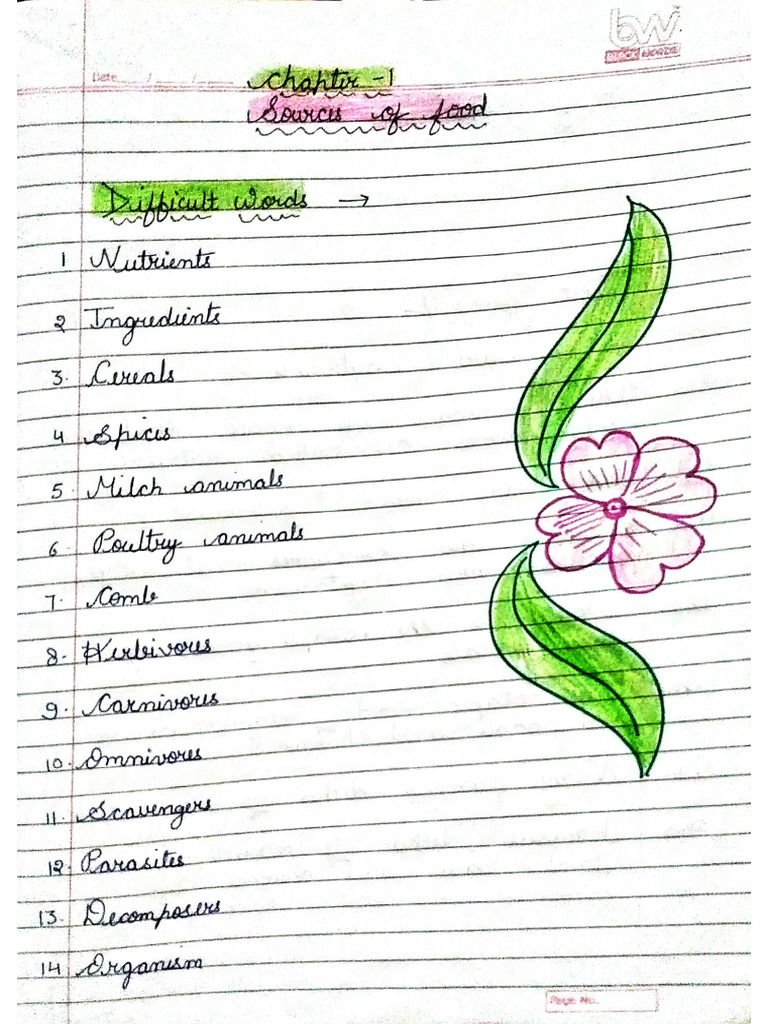 bw
BLACK WORDS
Date / /
Chapter -1
Sources of food
Difficult Words →
1 Nutrients
2 Ingredients
3. Cereals
4 Spices
5. Milch animals
6. Poultry animals
7. Comb
8. Herbivores
9. Carnivores
10. Omnivores
11. Scavengers
12. Parasites
13. Decomposers
14 Organism
Page No.